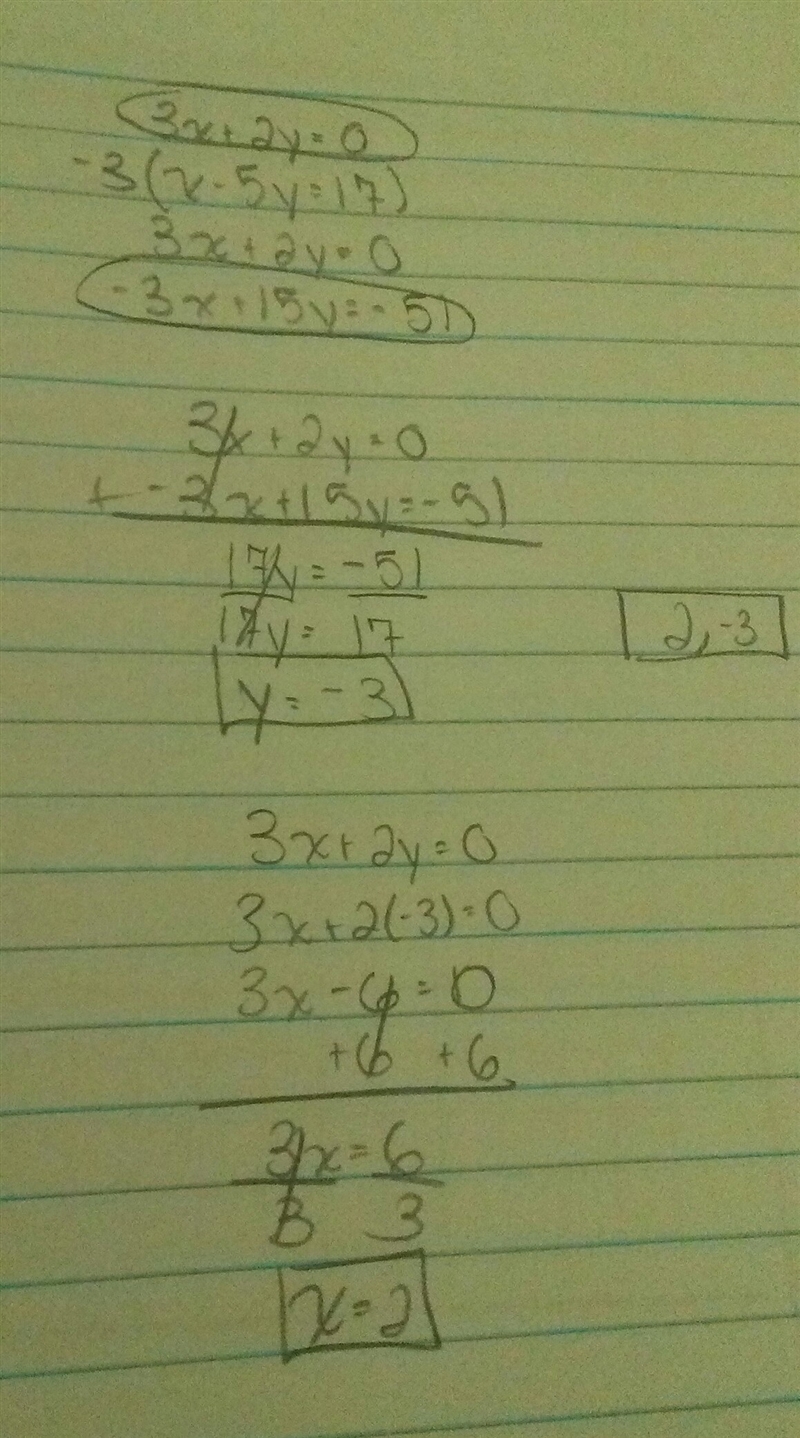 3x+2y=0
-3(x-5y=17)
3x+2y=0
-3x+15y=-51
3x+2y=0
+ -3x+15y=-51
17y = -51
17y = 17
y = -3
2, -3
3x+2y=0
3x+2(-3)=0
3x-6=0
+6 +6
3x=6
3 3
x=2